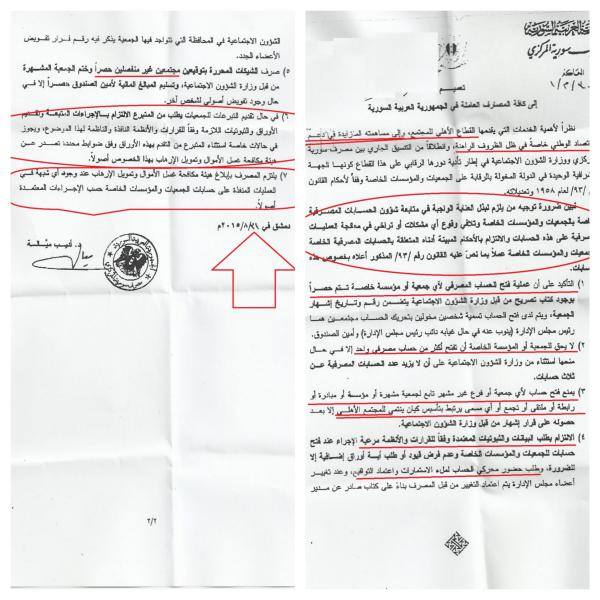 الجمهورية العربية السورية
مصرف سورية المركزي
تعميم
إلى كافة المصارف العاملة في الجمهورية العربية السورية
نظراً لأهمية الخدمات التي يقدمها القطاع الأهلي للمجتمع، وإلى مساهمته المتزايدة في دعم
الاقتصاد الوطني خاصة في ظل الظروف الراهنة، وانطلاقاً من التنسيق الجاري بين مصرف سورية
المركزي ووزارة الشؤون الاجتماعية في إطار تأدية دورها الرقابي على هذا القطاع كونها الجهة
الوحيدة في الدولة المخولة بالرقابة على الجمعيات والمؤسسات الخاصة وفقاً لأحكام القانون
/٩٣/ لعام ١٩٥٨ وتعديلاته.
نبين ضرورة توجيه من يلزم لبذل العناية الواجبة في متابعة شؤون الحسابات المصرفية
الخاصة بالجمعيات والمؤسسات الخاصة وتلافي وقوع أي مشكلات أو تراخي في معالجة العمليات
المصرفية على هذه الحسابات والالتزام بالأحكام المبينة أدناه المتعلقة بالحسابات المصرفية الخاصة
بالجمعيات والمؤسسات الخاصة عملاً بما نص عليه القانون رقم /٩٣/ المذكور أعلاه بخصوص هذه
الحسابات:
١) التأكيد على أن عملية فتح الحساب المصرفي لأي جمعية أو مؤسسة خاصة تتم حصراً
بوجود كتاب تصريح من قبل وزارة الشؤون الاجتماعية يتضمن رقم وتاريخ إشهار
الجمعية، ويتم لدى فتح الحساب تسمية شخصين مخولين بتحريك الحساب مجتمعين هما
رئيس مجلس الإدارة (ينوب عنه في حال غيابه نائب رئيس مجلس الإدارة) وأمين الصندوق.
٢) لا يحق للجمعية أو المؤسسة الخاصة أن تفتح أكثر من حساب مصرفي واحد إلا في حال
منحها استثناء من وزارة الشؤون الاجتماعية على أن لا يزيد عدد الحسابات المصرفية عن
ثلاث حسابات.
٣) يمنع فتح حساب لأي جمعية أو فرع غير مشهر تابع لجمعية مشهرة أو مؤسسة أو مبادرة أو
رابطة أو ملتقى أو تجمع أو أي مسمى يرتبط بتأسيس كيان ينتمي للمجتمع الأهلي إلا بعد
حصوله على قرار إشهار من قبل وزارة الشؤون الاجتماعية.
٤) الالتزام بطلب البيانات والثبوتيات المعتمدة وفقاً للقرارات والأنظمة مرعية الإجراء عند فتح
حسابات للجمعيات والمؤسسات الخاصة وعدم فرض قيود أو طلب أية أوراق إضافية إلا
للضرورة، وطلب حضور محركي الحساب لملء الاستمارات واعتماد التوقيع، وعند تغيير
أعضاء مجلس الإدارة يتم اعتماد التغيير من قبل المصرف بناءً على كتاب صادر عن مدير
الشؤون الاجتماعية في المحافظة التي تتواجد فيها الجمعية يذكر فيه رقم قرار تفويض
الأعضاء الجدد.
٥) صرف الشيكات المحررة بتوقيعين مجتمعين غير منفصلين حصراً وختم الجمعية المشهرة
من قبل وزارة الشؤون الاجتماعية، وتسليم المبالغ المالية لأمين الصندوق حصراً إلا في
حال وجود تفويض أصولي لشخص آخر.
٦) في حال تقديم التبرعات للجمعيات يطلب من المتبرع الالتزام بالإجراءات المتبعة وتقديم
الأوراق والثبوتيات اللازمة وفقاً للقرارات والأنظمة النافذة والناظمة لهذا الموضوع، ويجوز
في حالات خاصة استثناء المتبرع من التقدم بهذه الأوراق وفق ضوابط محددة، تصدر عن
هيئة مكافحة غسل الأموال وتمويل الإرهاب بهذا الخصوص أصولاً.
٧) يلتزم المصرف بإبلاغ هيئة مكافحة غسل الأموال وتمويل الإرهاب عند وجود أي شبهة في
العمليات المنفذة على حسابات الجمعيات والمؤسسات الخاصة حسب الإجراءات المعتمدة
أصولاً.
دمشق في ٢٠١٥/٨/٢٦م
د. أديب ميالة
٢/٢